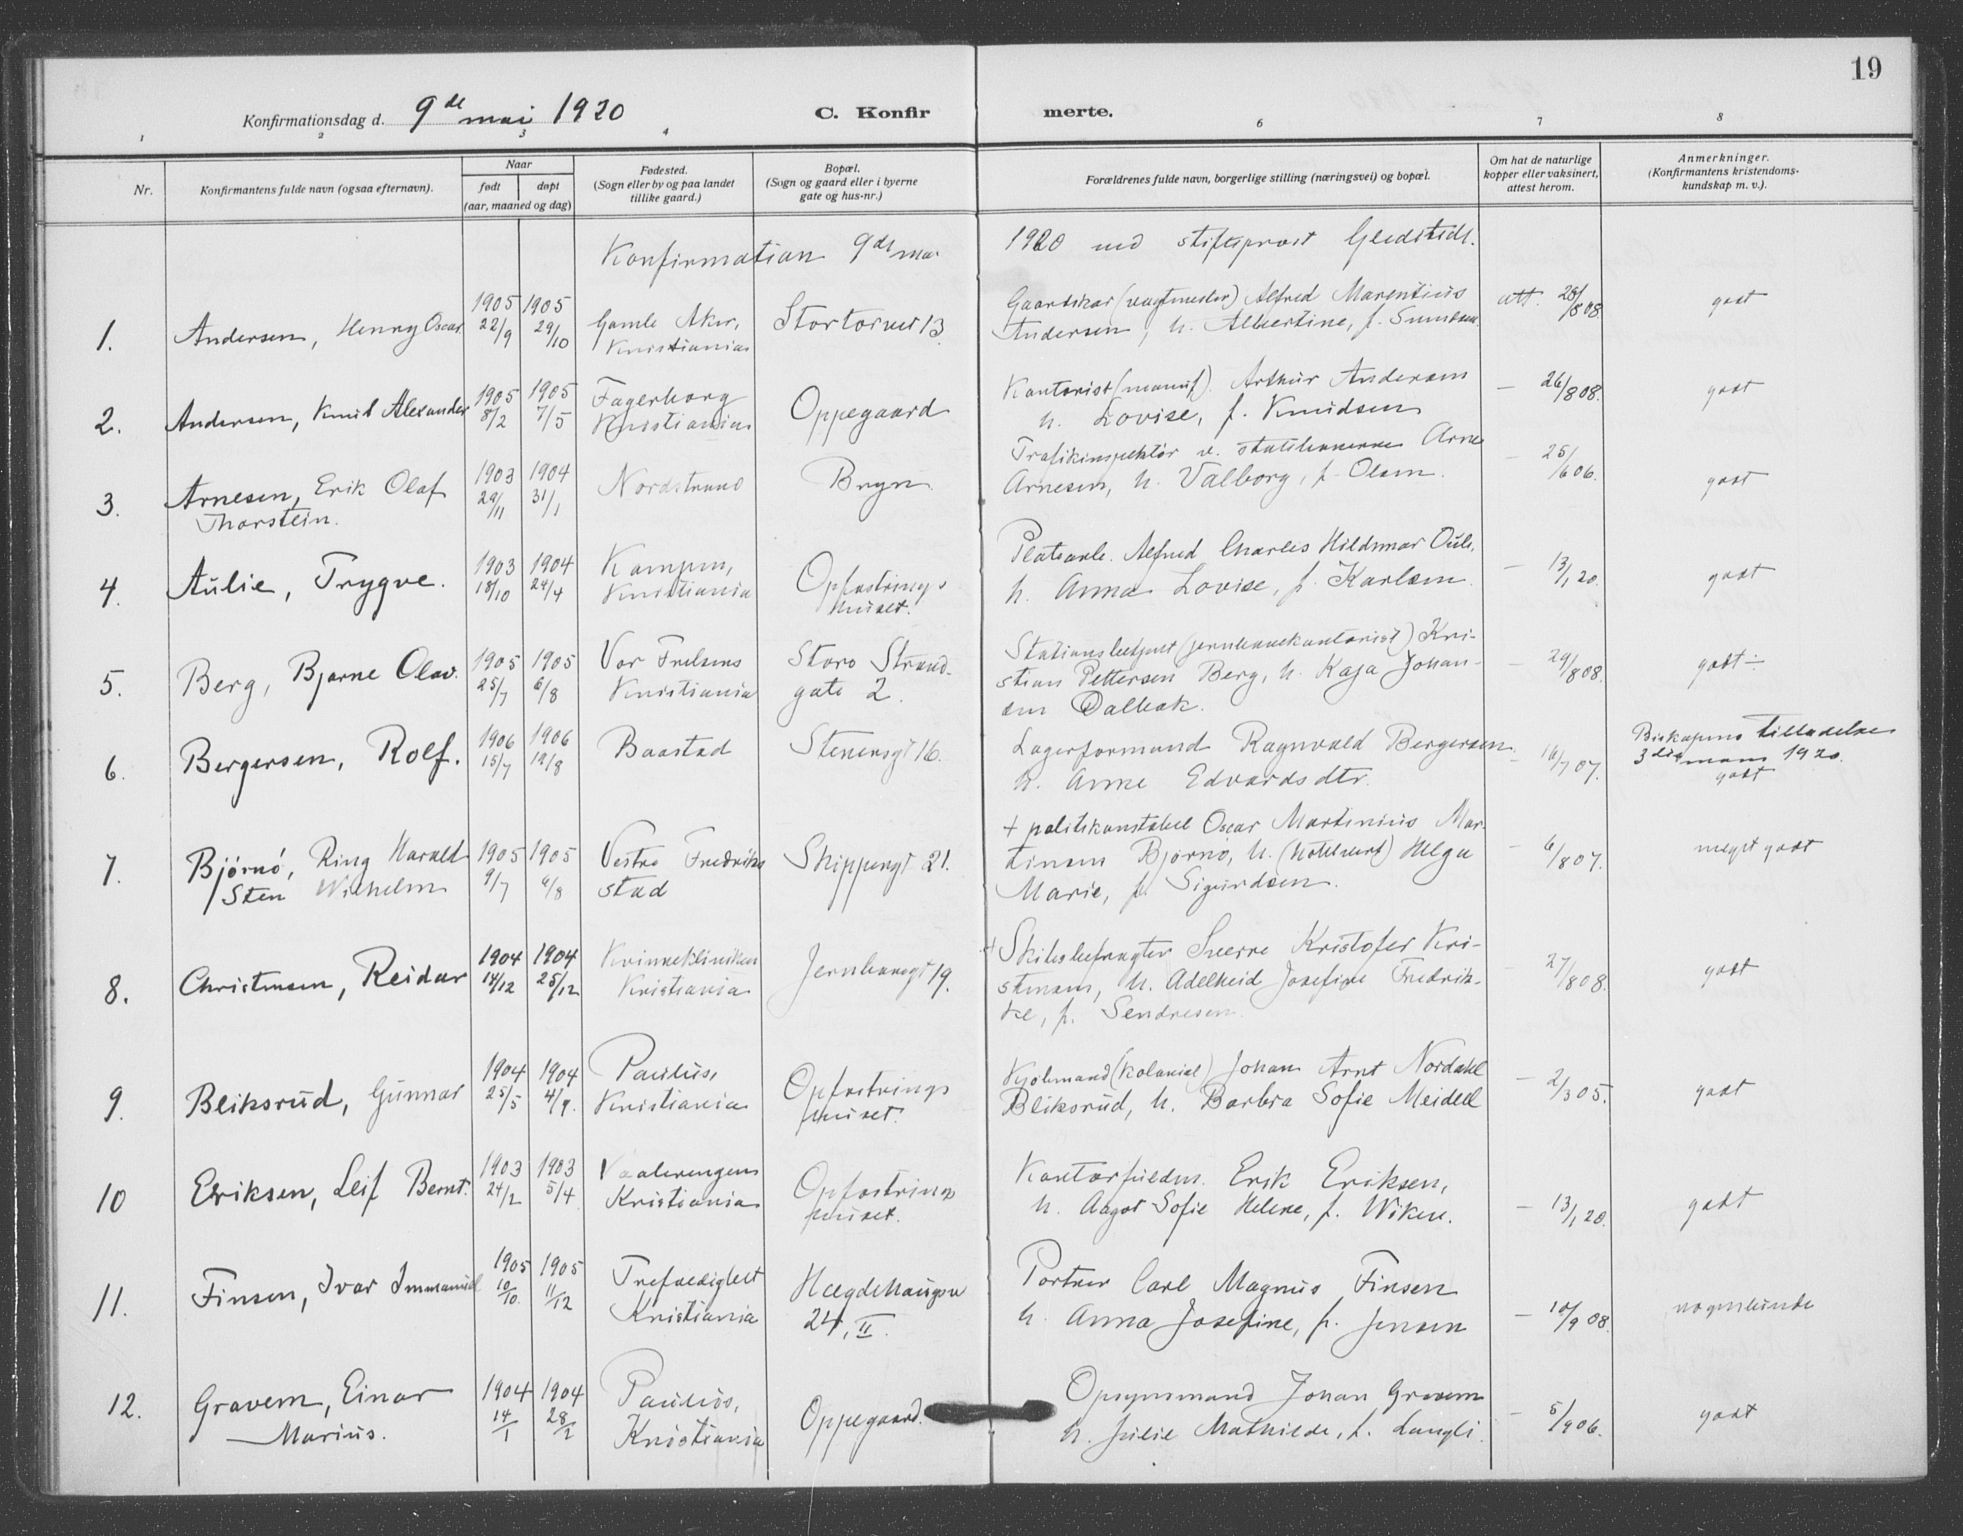 19
Konfirmationsdag d. 9de mai 1920 C. Konfirmerte.
1 2 3 4 6 7 8
Nr.
Konfirmantens fulde navn (ogsaa efternavn).
Naar
født døpt
(aar, maaned og dag)
Fødested.
(Sogn eller by og paa landet
tillike gaard.)
Bopæl.
(Sogn og gaard eller i byerne
gate og hus-nr.)
Forældrenes fulde navn, borgerlige stilling (næringsvei) og bopæl.
Om hat de naturlige
kopper eller vaksinert,
attest herom.
Anmerkninger.
(Konfirmantens kristendoms-
kundskap m. v.).
Konfirmation 9de mai 1920 ved stiftsprost Gleditsch.
1. Andersen, Henry Oscar 1905 22/9 1905 29/10 Gamle Aker, Kristiania Stortorvet 13
Gaardskar (vagtmester) Alfred Marentius
Andersen, h. Albertine, f.
att. 28/8 08. godt
2. Andersen, Knut Alexander 1905 8/2 1905 7/5 Fagerborg Kristiania Oppegaard
Kontorist (manuf). Arthur Andersen
h. Lovise, f. Knudsen
— 26/8 08. godt
3. Arnesen, Erik Olaf
Thorstein. 1903 29/11 1904 31/1 Nordstrand Bryn
Trafikinspektør v. statsbanerne Arne
Arnesen, h. Valborg, f. Olsen.
— 25/6 06. godt
4. Aulie, Trygve. 1903 18/10 1904 24/4 Kampen, Kristiania Opfostrings
huset.
Platearb. Alfred Charles Hildemar
h. Anna Lovise, f. Karlsen.
— 13/1 20. godt
5. Berg, Bjarne Olav. 1905 25/7 1905 6/8 Vor Frelsers Kristiania Store Strand-
gate 2.
Stationsbetjent (jernbanekontorist) Kri-
stian Pettersen Berg, h. Kaja Johan-
sen Dalbak.
— 29/8 08. godt ÷
6. Bergersen, Rolf. 1906 15/7 1906 19/8 Baastad Stenersgt 16.
Lagerformand Ragnvald Bergersen
h. Anne Edvardsdtr.
— 16/7 07.
Biskopens tilladelse
3die mars 1920.
godt
7. Bjørnø, Ring Harald
Sten Wilhelm 1905 9/7 1905 6/8 Vestre Fredrik-
stad Skippergt 21.
+ politikonstabel Oscar Martinius Mar-
tinsen Bjørnø, h. (hotelvert) Helga
Marie, f. Sigurdsen.
— 6/8 07. meget godt
8. Christensen, Reidar 1904 14/12 1904 25/12 Kvinneklinikken Kristiania Jernbanegt 19.
+ Skibsbefragter Sverre Kristofer Kri-
stensen, h. Adelheid Josefine Fredrik-
ke, f. Sendresen.
— 27/8 08. godt
9. Bliksrud, Gunnar 1904 25/5 1904 4/9. Paulus, Kristiania Opfostrings
huset.
Kjøbmand (kolonial) Johan Arnt Nordahl
Bliksrud, h. Barbra Sofie Meidell
— 2/3 05. godt
10 Eriksen, Leif Bernt. 1903 24/2 1903 5/4 Vaalerengens Kristiania Opfostrings
huset.
Kontorfuldm. Erik Eriksen,
h. Aagot Sofie Helene, f. Wiken.
— 13/1 20. godt
11. Finsen, Ivar Immanuel 1905 10/10. 1905 11/12 Trefoldighet Kristiania Hegdehaugsv
24, II.
Portner Carl Magnus Finsen
h. Anna Josefine, f. Jensen
— 10/9 08. nogenlunde
12. Gravem, Einar
Marius. 1904 14/1 1904 28/2 Paulus, Kristiania Oppegaard.
Opsynsmand Johan Gravem
h. Julie Mathilde, f. Langli.
— 5/9 06. godt